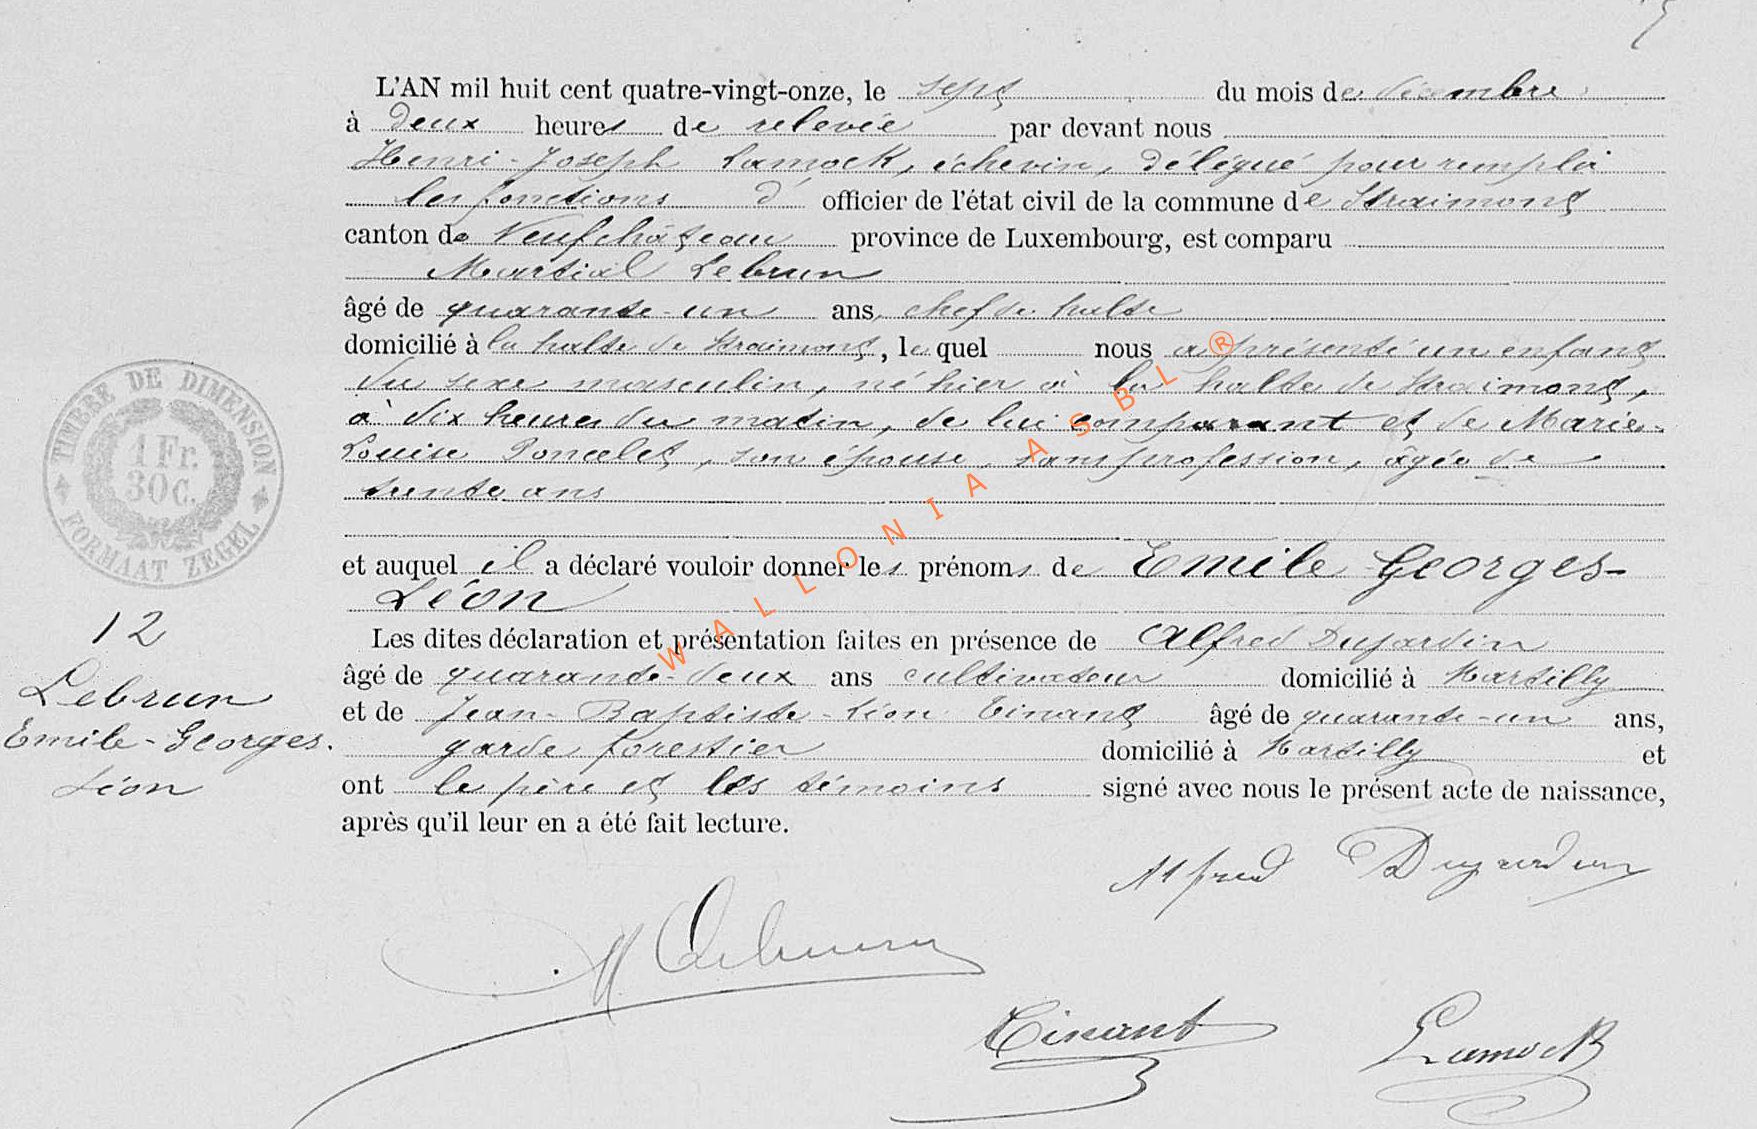 L'AN mil huit cent quatre-vingt-onze, le sept du mois de décembre
à deux heures de relevée par devant nous
Henri-Joseph Lamock, échevin, délégué pour remplir
les fonctions d' officier de l'état civil de la commune de Straimont
canton de Neufchâteau province de Luxembourg, est comparu
Martial Lebrun
âgé de quarante-un ans, chef de halte
domicilié à la halte de Straimont, le quel nous a présenté un enfant
du sexe masculin, né hier à la halte de Straimont,
à dix heures du matin, de lui comparant et de Marie-
Louise Poncelet, son épouse, sans profession, âgée de
trente ans
et auquel il a déclaré vouloir donner les prénoms de Emile-Georges-
Léon
Les dites déclaration et présentation faites en présence de Alfred Dujardin
âgé de quarante-deux ans cultivateur domicilié à Martilly
et de Jean-Baptiste-Léon Tinant âgé de quarante-un ans,
garde forestier domicilié à Martilly et
ont le père et les témoins signé avec nous le présent acte de naissance,
après qu'il leur en a été fait lecture.
TIMBRE DE DIMENSION
1 Fr.
30 C.
FORMAAT ZEGEL
12
Lebrun
Emile-Georges.
Léon
Alfred Dujardin
M Lebrun
Tinant
Lamock
WALLONIA ASBL ®